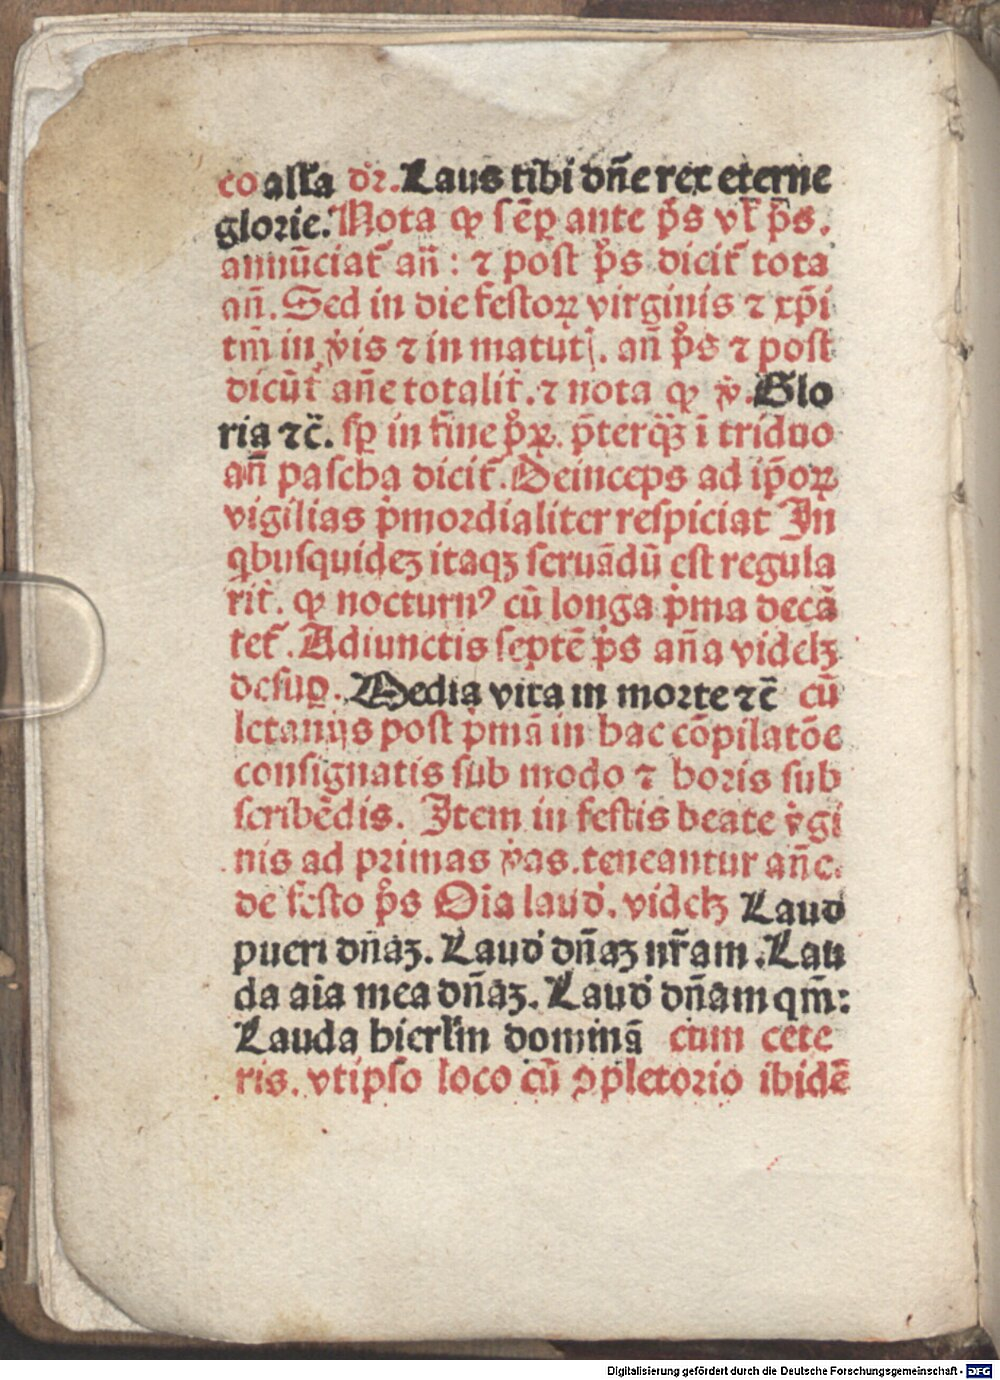 co alľa dꝛ. Laus tibi dn̄e rex eterne
gloꝛie. Nota ꝙ sēꝑ ante p̄s vľ p̄s.
annūciat᷑ an̄: ⁊ post pˢs dicit᷑ tota
an̄. Sed in die festoꝝ virginis ⁊ xp̄i
tm̄ in v̓is ⁊ in matut᷑. an̄ pˢs ⁊ post
dicūt᷑ an̄e totalit᷑. ⁊ nota ꝙ v̓. Glo
ria ⁊c̄. sꝑ in fine pˢꝝ. p̄terqȝ ī triduo
an̄ pascha dicit᷑. Deinceps ad ip̄oꝝ
vigilias p̓moꝛdialiter respiciat In
qbusquideȝ itaqȝ seruādū est regula
rit᷑. ꝙ nocturnꝰ cū longa p̓ma decā
tet᷑. Adiunctis septē p̓s an̄a videlȝ
desuꝑ. Media vita in moꝛte ⁊c̄ cū
letanijs post p̓mā in hac cōpilatōe
consignatis sub modo ⁊ hoꝛis sub
scribēdis. Item in festis beate v̓gi
nis ad primas v̓as. teneantur an̄e.
de festo pˢs Oīa laud̓. videlȝ Laud
pueri dn̄aȝ. Laud̓ dn̄aȝ nr̄am. Lau
da aīa mea dn̄aȝ. Laud̓ dn̄am qm̄:
Lauda hierľm dominā cum cete
ris. vt ipso loco cū ꝯpletoꝛio ibidē
Digitalisierung gefördert durch die Deutsche Forschungsgemeinschaft - DFG